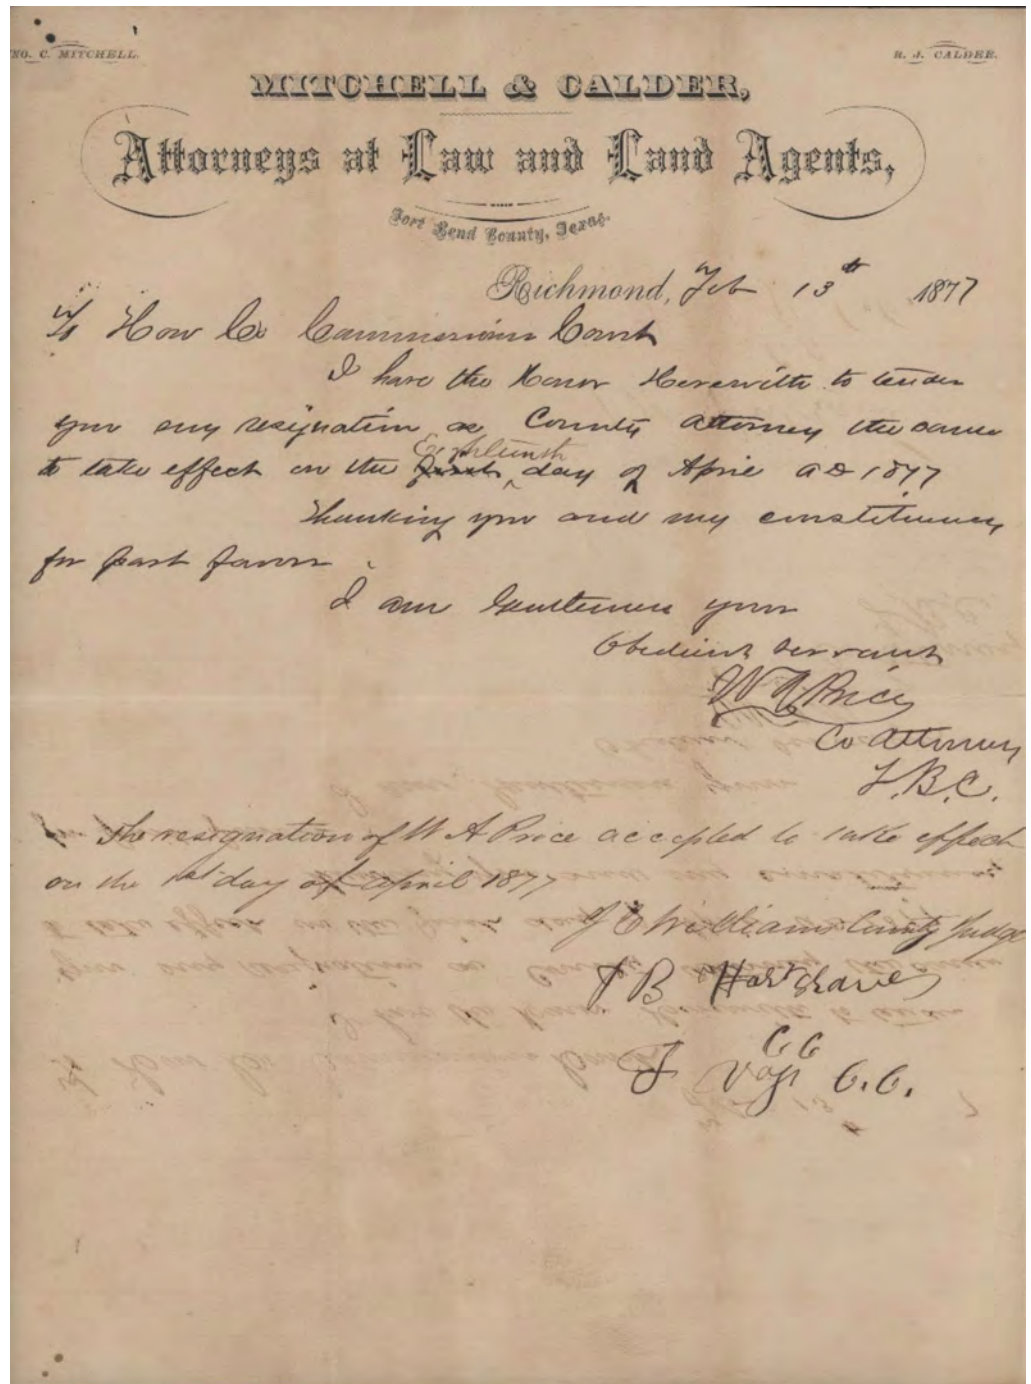 NO. C. MITCHELL.
R. J. CALDER.
MITCHELL & CALDER,
Attorneys at Law and Land Agents,
Fort Bend County, Texas.
Richmond, Feb 13th 1877
To Hon Co Commissioners Court
I have the Honor Herewith to tender
you my resignation as County Attorney the same
Eighteenth
to take effect on the first day of April AD 1877
Thanking you and my constituency
for past favors
I am Gentlemen your
Obedient Servant
W A Price
Co Attorney
F.B.C.
The resignation of W A Price accepted to take effect
on the 1st day of April 1877
County Judge
J B Hargraves
C C
C.C.